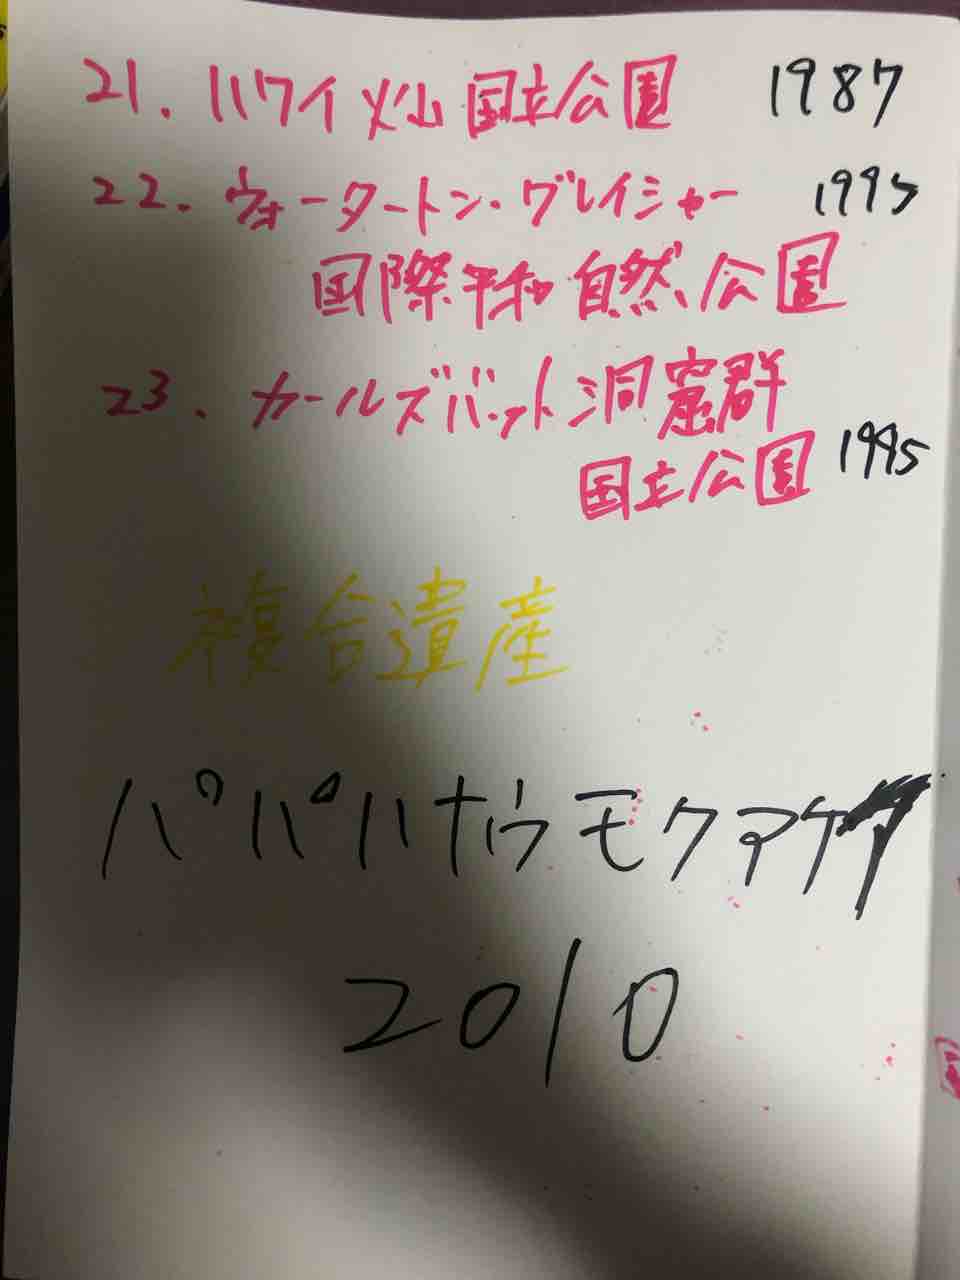 21. ハワイ火山国立公園 1987
22. ウォータートン・グレイシャー 1995
国際平和自然公園
23. カールズバット洞窟群
国立公園 1995
複合遺産
パパハナウモクアケア
2010